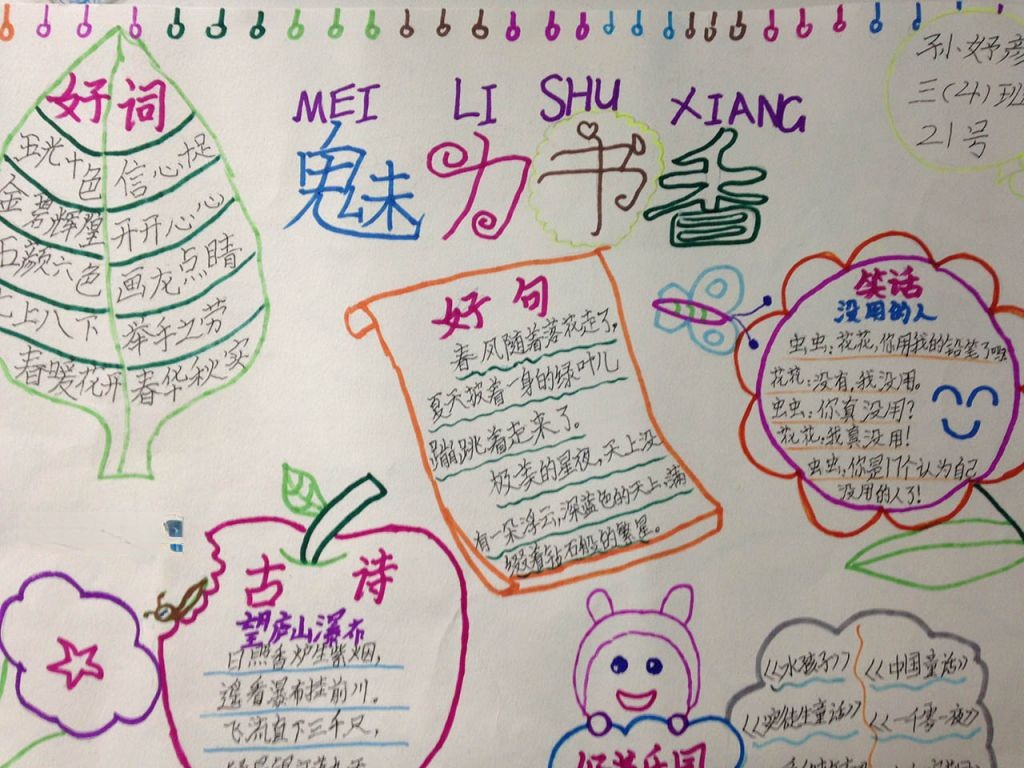 MEI LI SHU XIANG
魅力书香
孙妤彦
三(4)班
21号
好词
五光十色 信心十足
金碧辉煌 开开心心
五颜六色 画龙点睛
七上八下 举手之劳
春暖花开 春华秋实
好句
春风随着落花走了,
夏天披着一身的绿叶儿
蹦跳着走来了。
极美的星夜,天上没
有一朵浮云,深蓝色的天上,满
缀着钻石般的繁星。
笑话
没用的人
虫虫:花花,你用我的铅笔了吗
花花:没有,我没用。
虫虫:你真没用?
花花:我真没用!
虫虫:你是17个认为自己
没用的人了!
古诗
望庐山瀑布
日照香炉生紫烟,
遥看瀑布挂前川。
飞流直下三千尺,
《水孩子》 《中国童话》
《安徒生童话》 《一千零一夜》